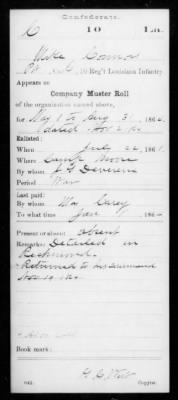 Confederate.
C 10 La.
Mike Connor
Pvt, Co. , 10 Reg't Louisiana Infantry
Appears on
Company Muster Roll
of the organization named above,
for May 1 to Aug 31, 1864.
dated Nov 2, 186
Enlisted:
When July 22, 1861.
Where Camp Moore
By whom
Period War
Last paid:
By whom Maj Carey
To what time Jan , 1864.
Present or absent absent
Remarks: Detailed in
Richmond.
Returned to his command
Book mark:
Copyist.